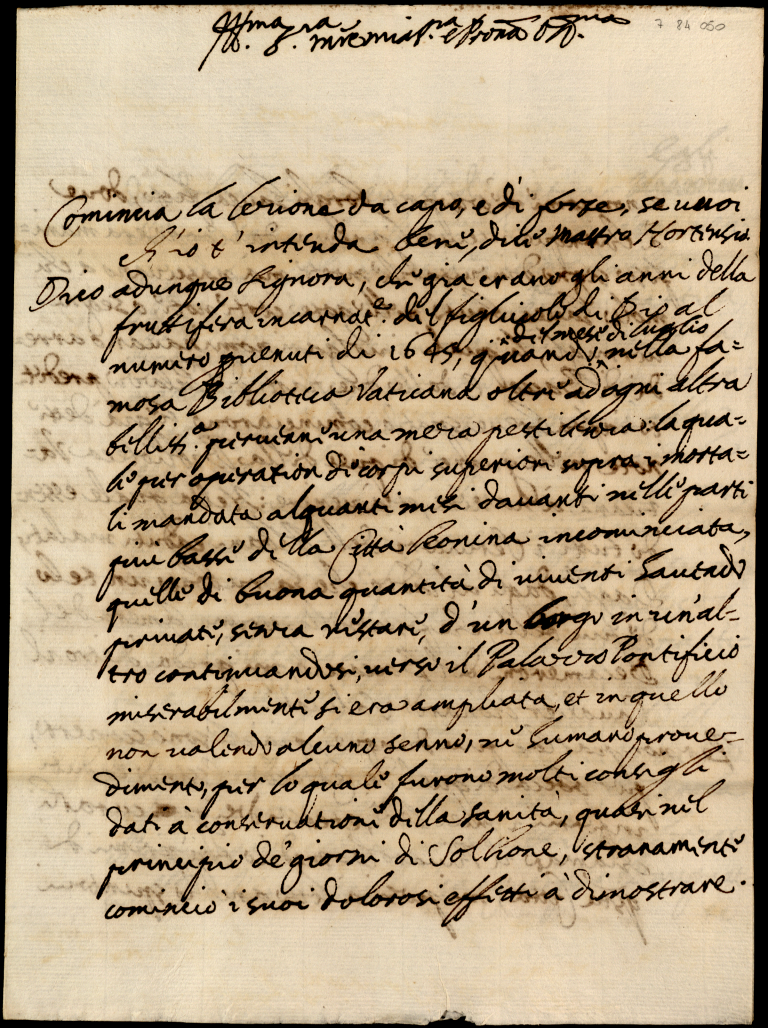 Ill.ma S.ra mia e Prona Oss.ma
7 84 050
Comincia la lezione da capo, e dì forze, se vuoi
ch'io t'intenda bene, dice Mastro Hortensio
Dico adunque Signora, che gia erano gli anni della
fruttifera incarnat.e del figliuolo di Dio al
numero pervenuti di 1645, quando, nella fa=
del mese di luglio
mosa Biblioteca Vaticana oltre ad ogni altra
belliss.a pervenne una mera pestilenza: la qua=
le per operation de corpi superiori sopra i morta=
li mandata alquanti mesi davanti nelle parti
più basse della Città leonina incominciata,
quelle di buona quantità di viventi havendo
private, senza restare, d'un borgo in un'al-
tro continuandosi, verso il Palazzo Pontificio
miserabilmente si era ampliata, et in quello
non valendo alcuno senno, nè humano prove=
dimento, per lo quale furono molti consigli
dati à conservatione della sanità, quasi nel
principio de' giorni di Sollione, stranamente
cominciò i suoi dolorosi effetti à dimostrare.